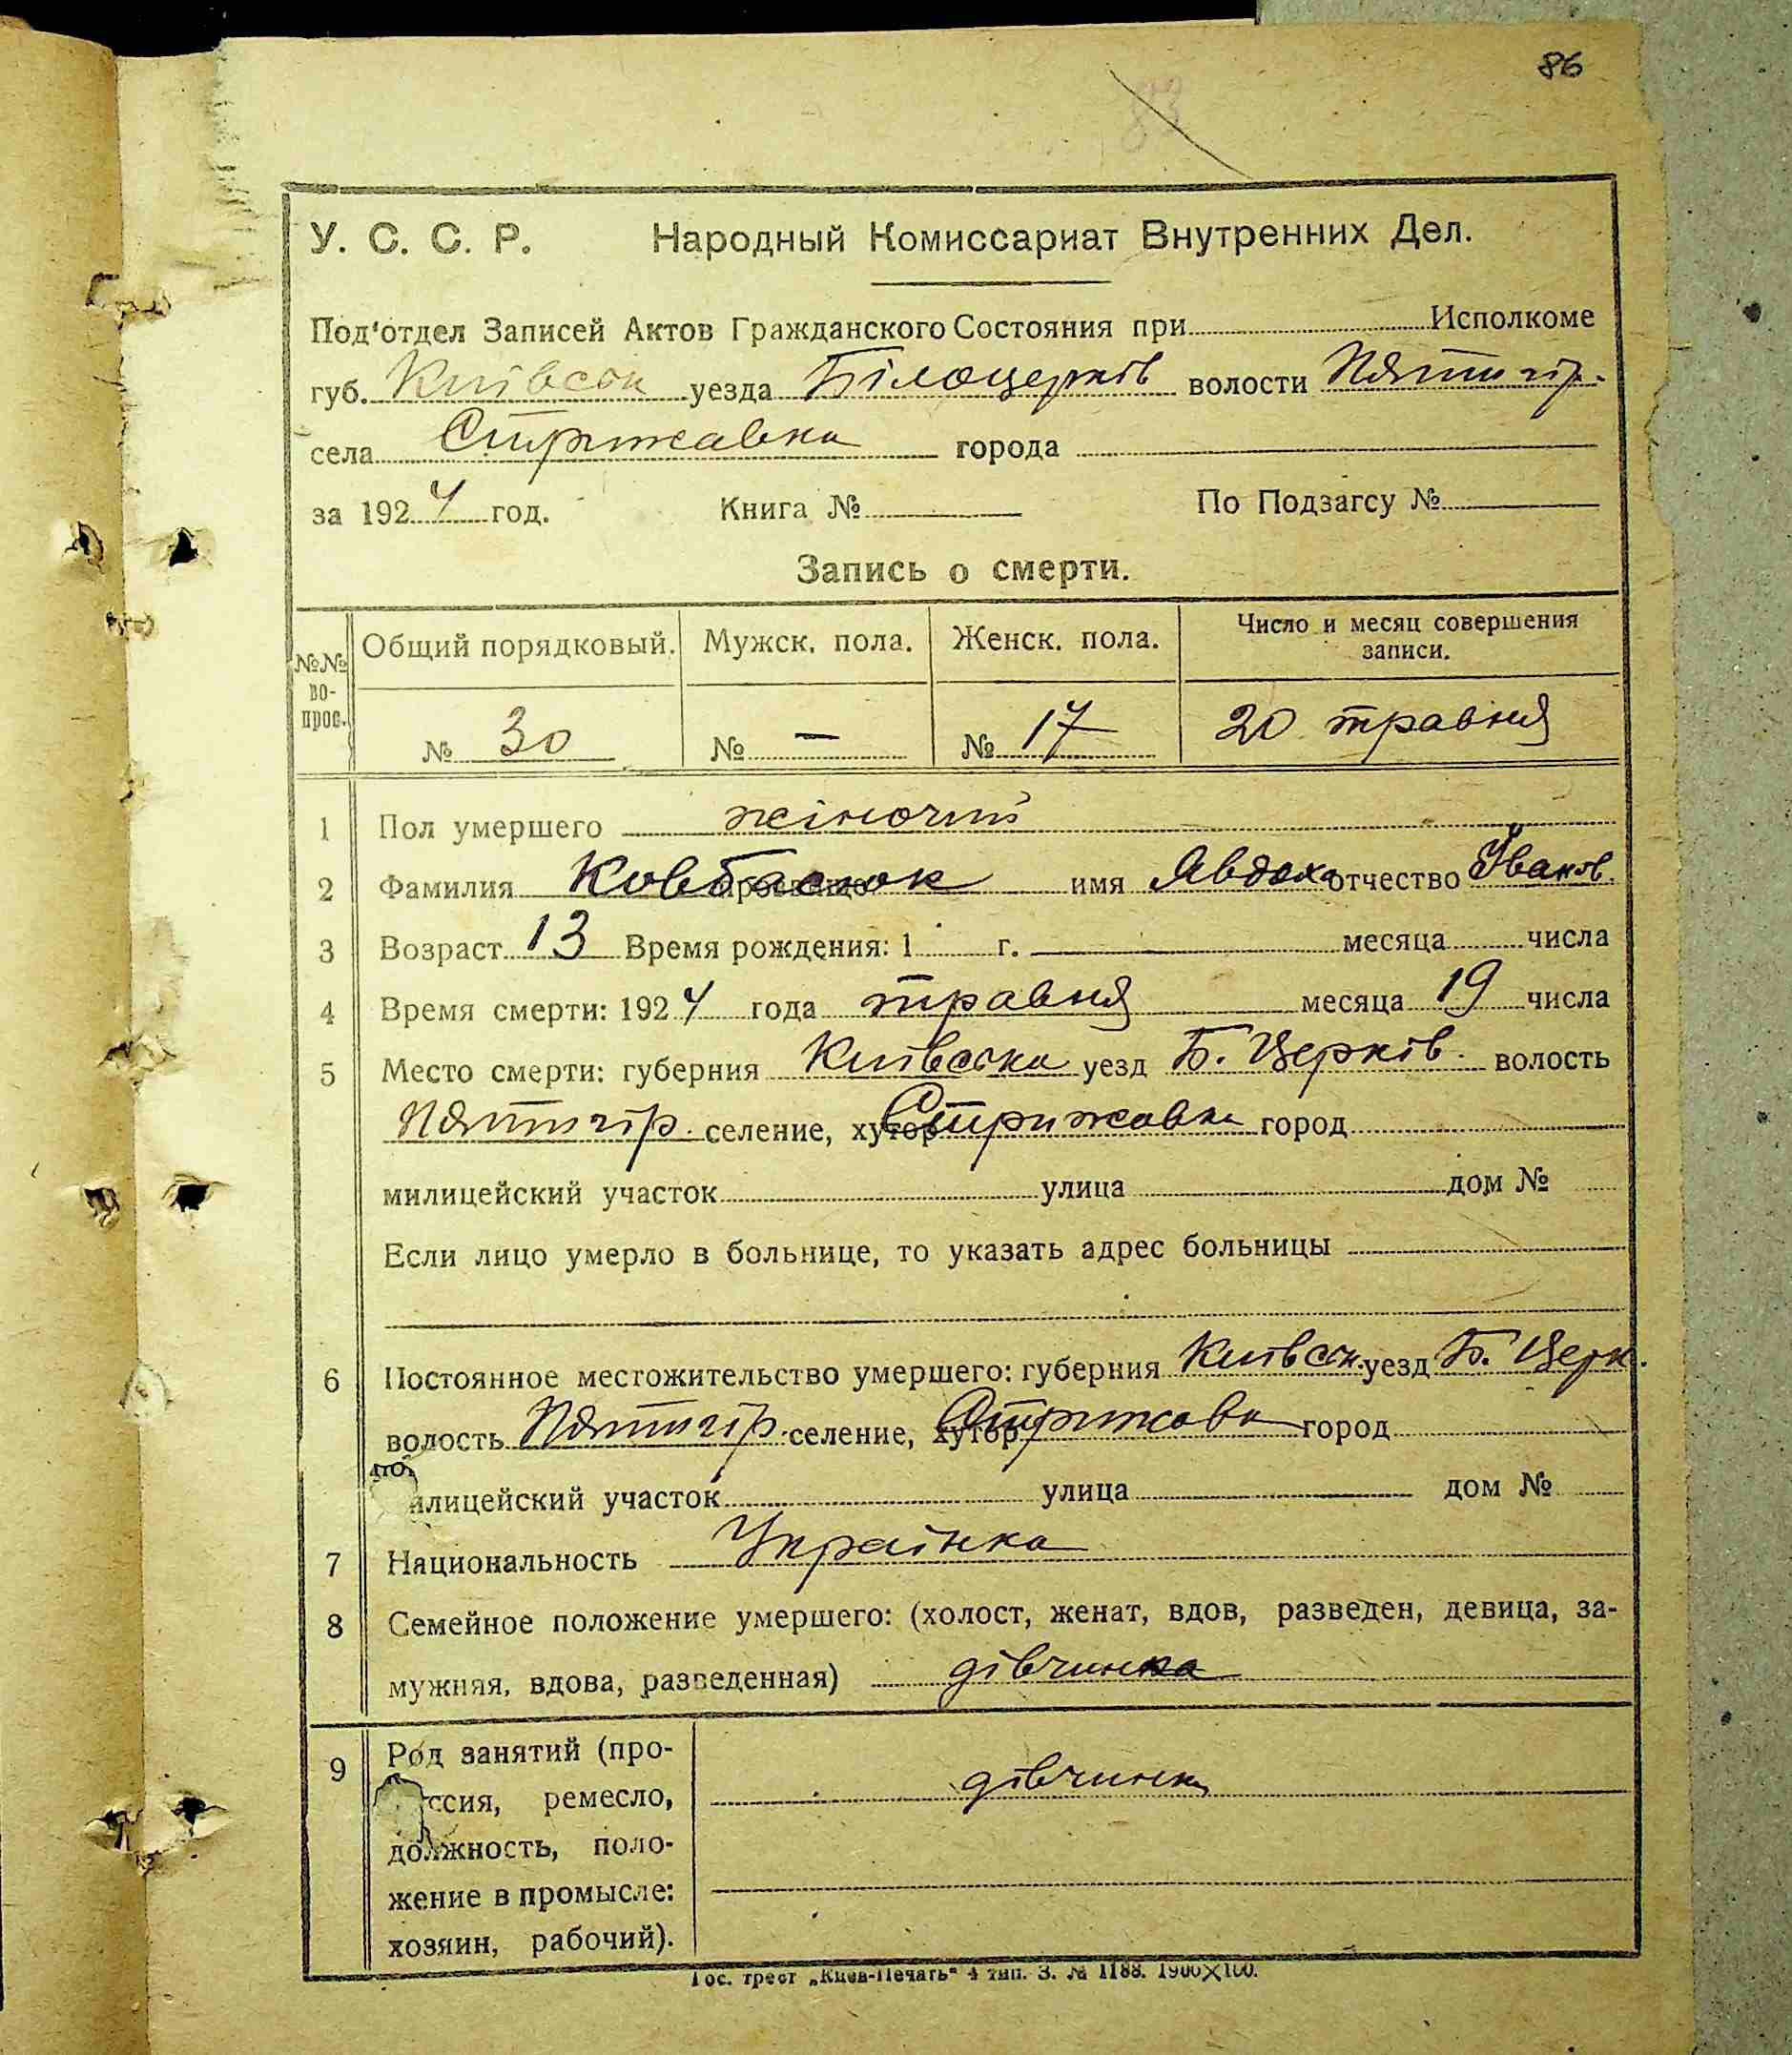 86
83
У. С. С. Р. Народный Комиссариат Внутренних Дел.
Под'отдел Записей Актов Гражданского Состояния при Исполкоме
губ. Київськ уезда Білоцерків волости Пятигір.
села Стрижавка города
за 1924 год. Книга № По Подзагсу №
Запись о смерти.
№№ во-прос. Общий порядковый. Мужск. пола. Женск. пола. Число и месяц совершения записи.
№ 30 № — № 17 20 травня
1 Пол умершего жіночий
2 Фамилия Ковбасюк имя Явдоха отчество Іванов.
3 Возраст 13 Время рождения: 1 г. месяца числа
4 Время смерти: 1924 года травня месяца 19 числа
5 Место смерти: губерния Київська уезд Б. Церків. волость
Пятигір. селение, хутор Стрижавка город
милицейский участок улица дом №
Если лицо умерло в больнице, то указать адрес больницы
6 Постоянное местожительство умершего: губерния Київськ. уезд Б. Церк.
волость Пятигір. селение, хутор Стрижавк город
илицейский участок улица дом №
7 Национальность Українка
8 Семейное положение умершего: (холост, женат, вдов, разведен, девица, за-
мужняя, вдова, разведенная) дівчинка
9 Род занятий (про-
ссия, ремесло, дівчинка
должность, поло-
жение в промысле:
хозяин, рабочий).
Гос. трест „Киев-Печать“ 4 тип. З. № 1188. 1900×100.